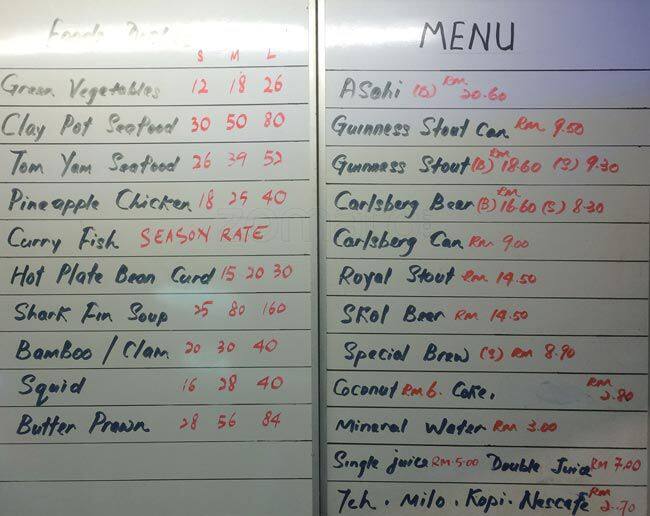 Foods
S M L
Green Vegetables 12 18 26
Clay Pot Seafood 30 50 80
Tom Yam Seafood 26 39 52
Pineapple Chicken 18 29 40
Curry Fish SEASON RATE
Hot Plate Bean Curd 15 20 30
Shark Fin Soup 25 80 160
Bamboo / Clam 20 30 40
Squid 16 28 40
Butter Prawn 28 56 84
MENU
ASahi (B) RM 20.60
Guinness Stout Can RM 9.50
Guinness Stout (B) RM 18.60 (S) 9.30
Carlsberg Beer (B) RM 16.60 (S) 8.30
Carlsberg Can RM 9.00
Royal Stout RM 14.50
SKol Beer RM 14.50
Special Brew (S) RM 8.90
Coconut RM 6. Coke. RM 2.80
Mineral Water RM 3.00
Single juice RM 5.00 Double Juice RM 7.00
Teh. Milo. Kopi. Nescafe RM 2.70